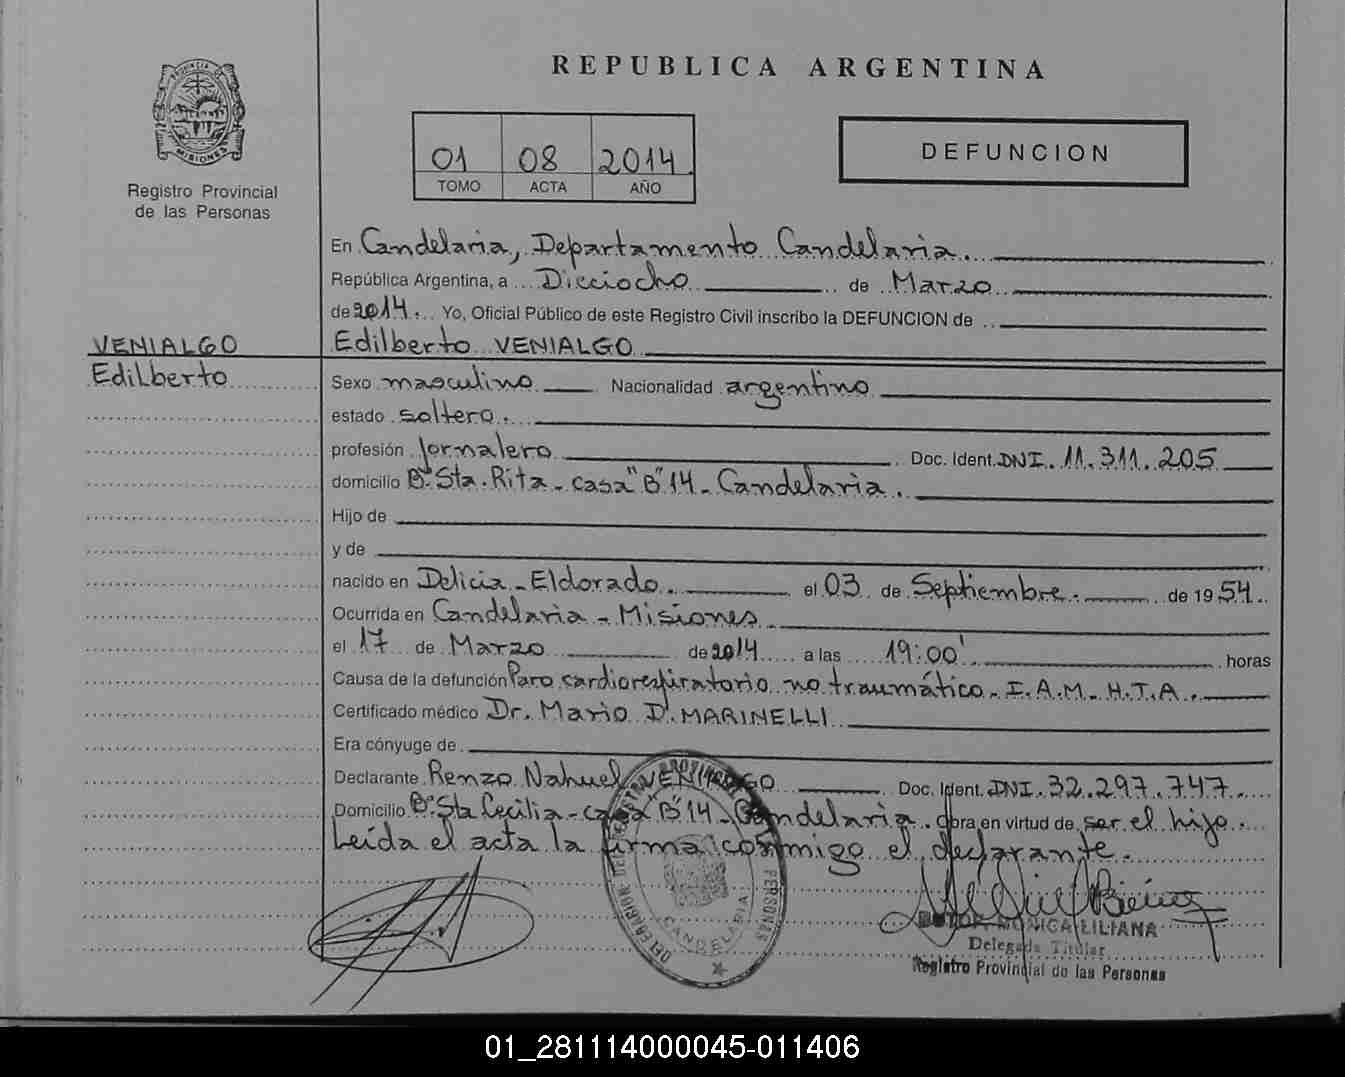 REPUBLICA ARGENTINA
PROVINCIA DE
MISIONES
Registro Provincial
de las Personas
01 08 2014
TOMO ACTA AÑO
DEFUNCION
En Candelaria, Departamento Candelaria.
República Argentina, a Dieciocho de Marzo
de 2014. Yo, Oficial Público de este Registro Civil inscribo la DEFUNCION de
VENIALGO
Edilberto
Edilberto VENIALGO
Sexo masculino Nacionalidad argentino
estado soltero.
profesión Jornalero Doc. Ident. DNI. 11.311.205
domicilio Bº Sta. Rita - casa "B" 14 - Candelaria.
Hijo de
y de
nacido en Delicia - Eldorado. el 03 de Septiembre. de 1954.
Ocurrida en Candelaria - Misiones
el 17 de Marzo de 2014 a las 19:00' horas
Causa de la defunción Paro cardiorespiratorio no traumático - I.A.M - H.T.A.
Certificado médico Dr. Mario D. MARINELLI
Era cónyuge de
Declarante Renzo Nahuel VENIALGO Doc. Ident. DNI. 32.297.747
Domicilio Bº Sta Cecilia - casa B" 14 - Candelaria. obra en virtud de ser el hijo.
Leída el acta la firma conmigo el declarante.
DEL REGISTRO PROVINCIAL PERSONAS
CANDELARIA
MONICA LILIANA
Delegada Titular
Registro Provincial de las Personas
01_281114000045-011406